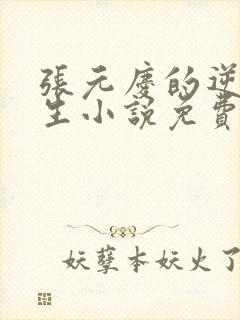 張元慶的逆
生小說免費
妖孽本妖火了